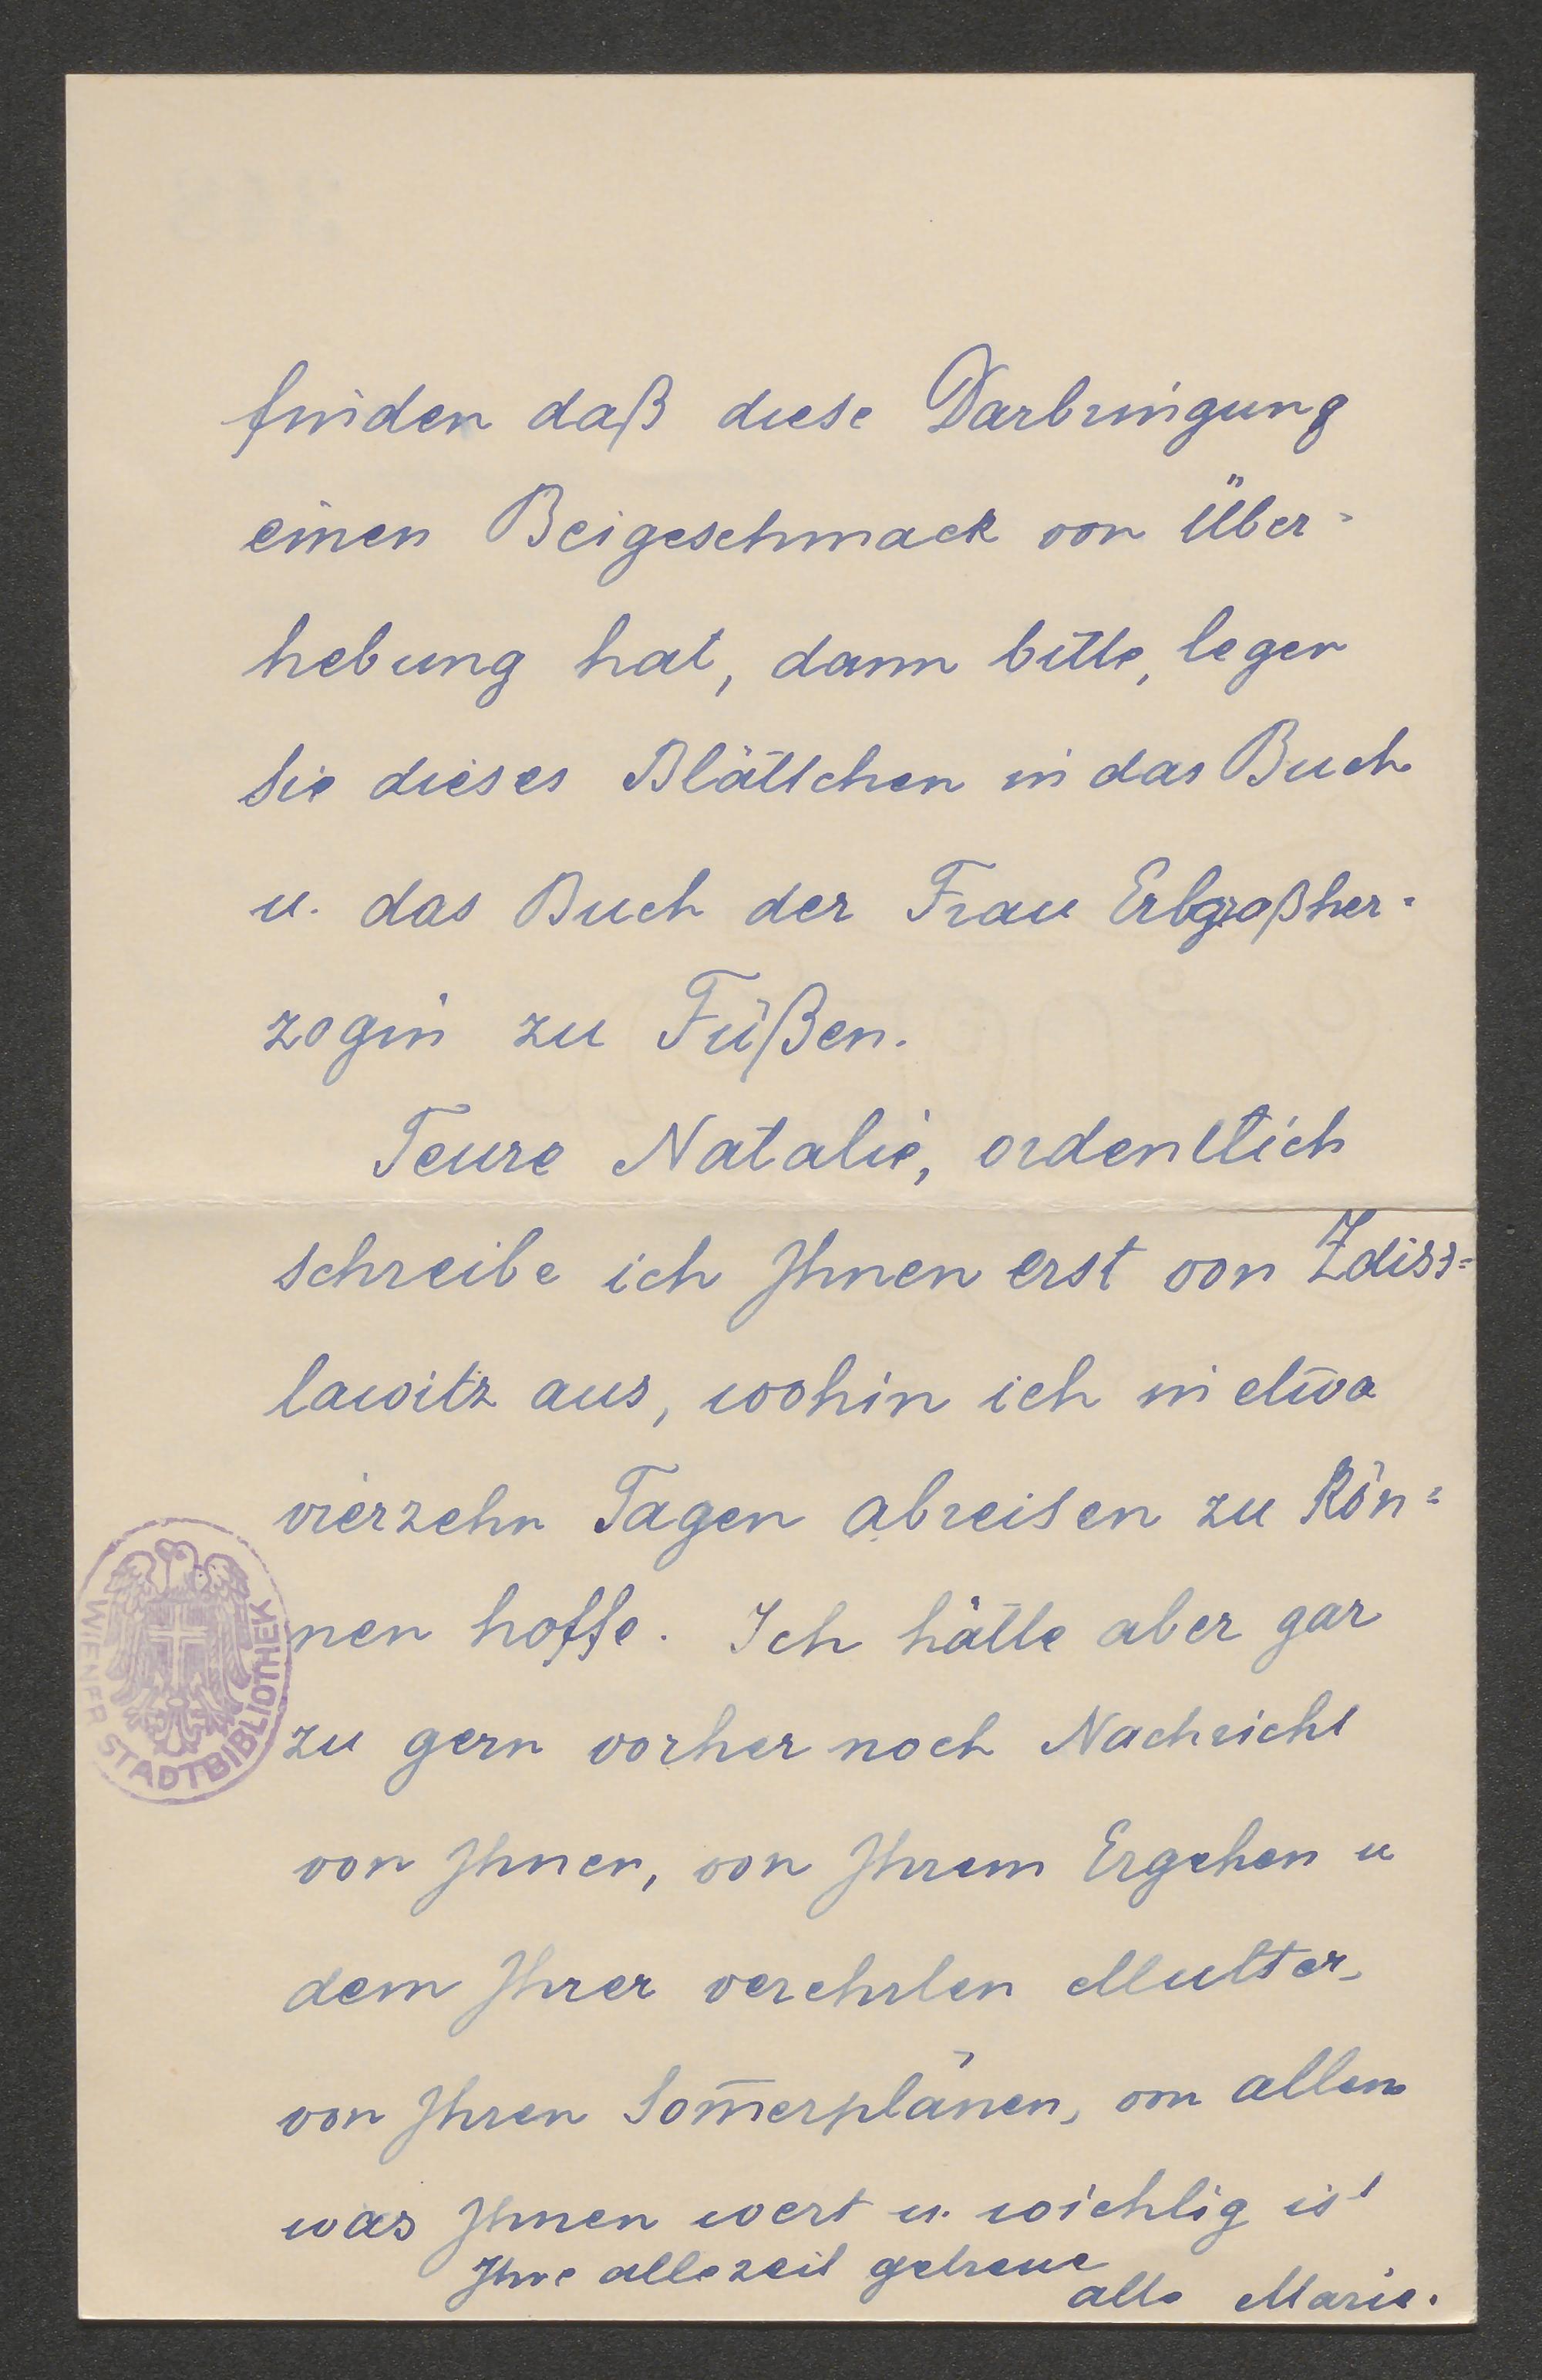 finden daß diese Darbringung
einen Beigeschmack von Über-
hebung hat, dann bitte, legen
Sie dieses Blättchen in das Buch
u. das Buch der Frau Erbgroßher-
zogin zu Füßen.
Teure Natalie, ordentlich
schreibe ich Ihnen erst von Zdiss=
lawitz aus, wohin ich in etwa
vierzehn Tagen abreisen zu kön=
nen hoffe. Ich hätte aber gar
zu gern vorher noch Nachricht
von Ihnen, von Ihrem Ergehen u
dem Ihrer verehrten Mutter,
von Ihren Som̄erplänen, von allem
was Ihnen wert u. wichtig ist
Ihre allezeit getreue
alte Marie.
WIENER STADTBIBLIOTHEK